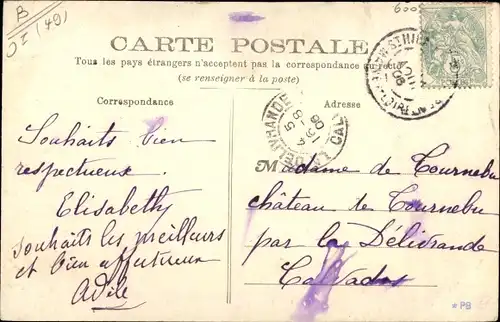 B
OI (49)
CARTE POSTALE
Tous les pays étrangers n'acceptent pas la correspondance au recto
(se renseigner à la poste)
Correspondance
Adresse
Souhaits bien
respectueux.
Elisabeth
souhaits les meilleurs
et bien affectueux
Adèle
Madame de Tournebu
château de Tournebu
par la Délivrande
Calvados
* PB